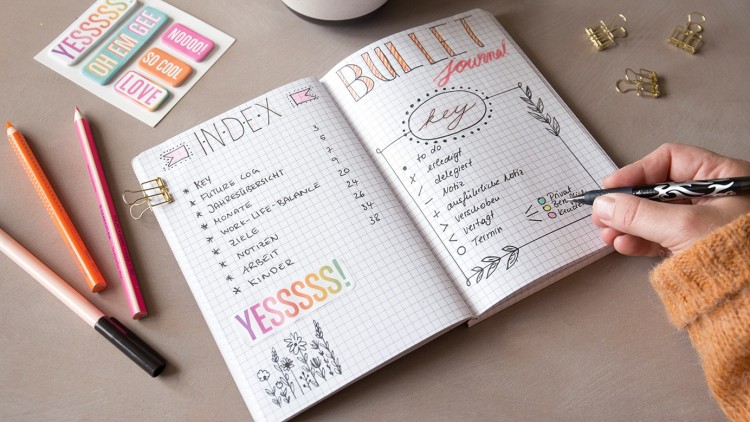 YESSSSS
OH EM GEE
NOOOO!
SO COOL
LOVE
INDEX
* KEY 3
* FUTURE LOG 5
* JAHRESÜBERSICHT 7
* MONATE 9
* WORK-LIFE-BALANCE 20
* ZIELE 24
* NOTIZEN 26
* ARBEIT 34
* KINDER 38
YESSSSS!
BULLET
journal
key
• to do
x erledigt
/ delegiert
– Notiz
+ ausführliche Notiz
> verschoben
< vertagt
O Termin
Privat